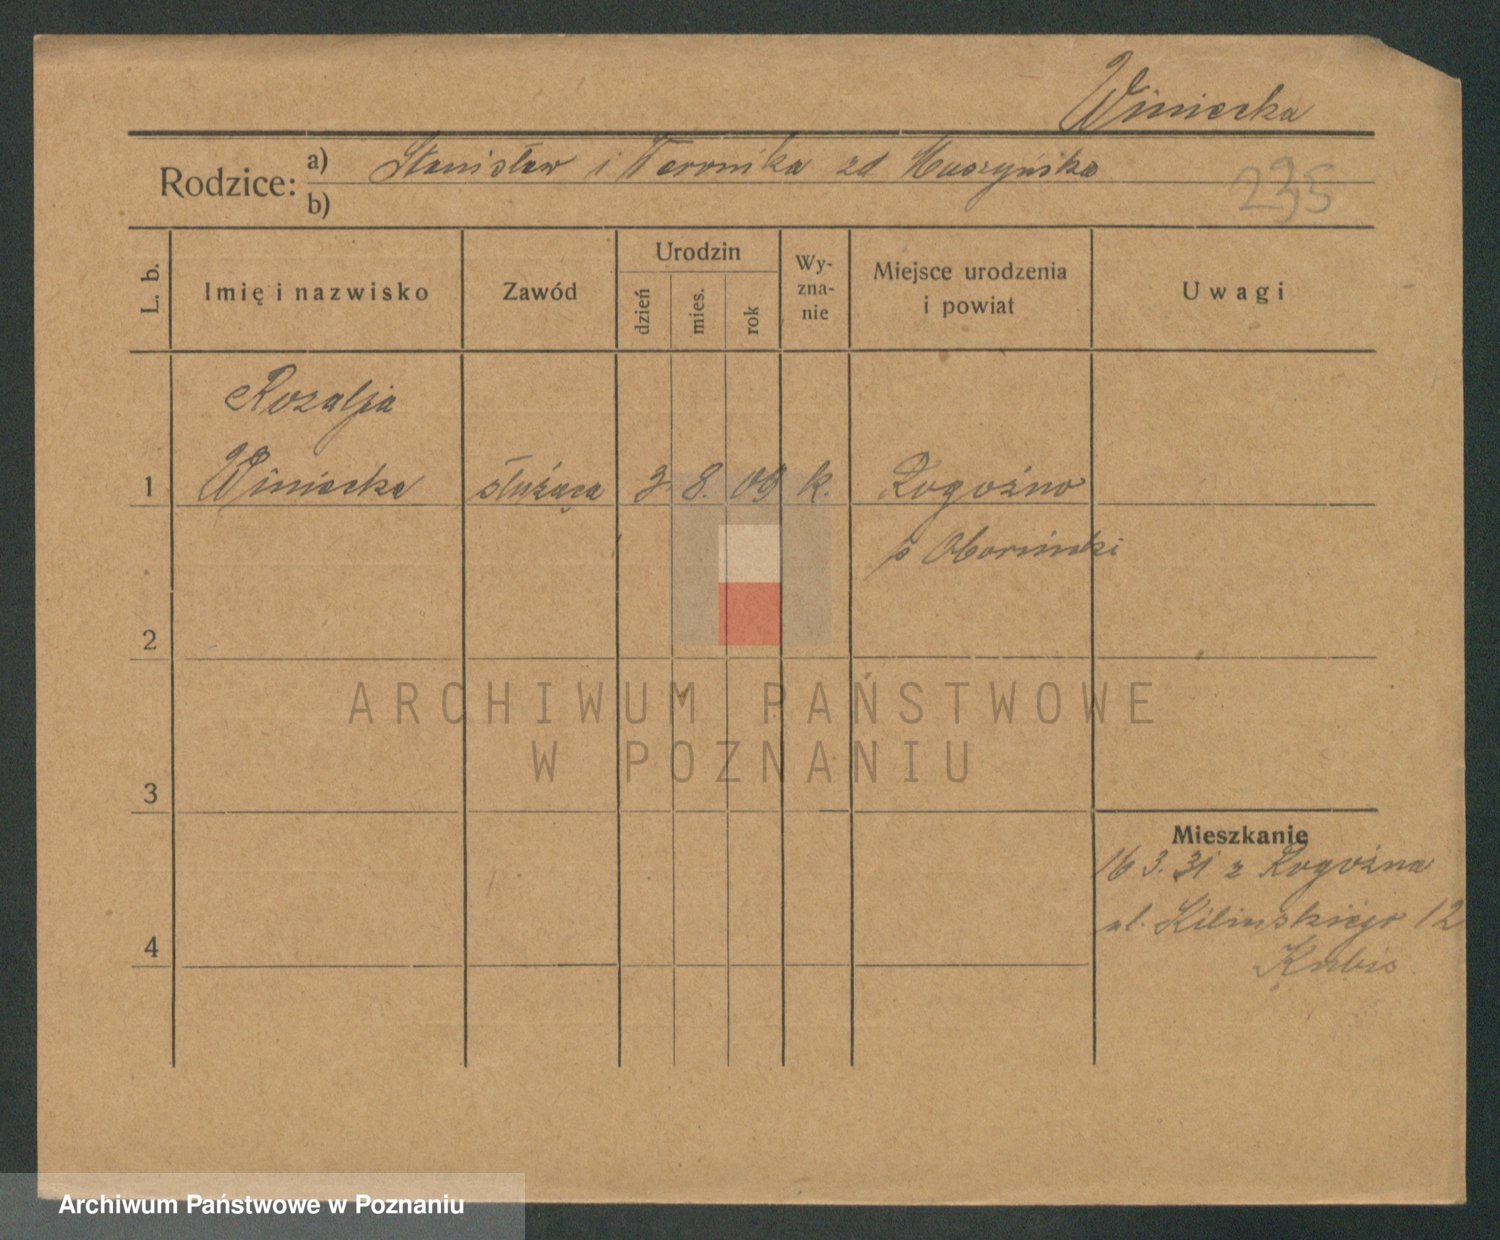 Winiecka
Rodzice: a) Stanisław i Weronika zd Muszyńska
b)
235
L. b.
Imię i nazwisko
Zawód
Urodzin
dzień
mies.
rok
Wy-
zna-
nie
Miejsce urodzenia
i powiat
Uwagi
Rozalja
1 Winiecka służąca 3. 8. 09 k. Rogoźno
p Obornicki
2
ARCHIWUM PAŃSTWOWE
W POZNANIU
3
Mieszkanie
16 3. 31 z Rogoźna
ul. Kilińskiego 12
4
Kubis
Archiwum Państwowe w Poznaniu